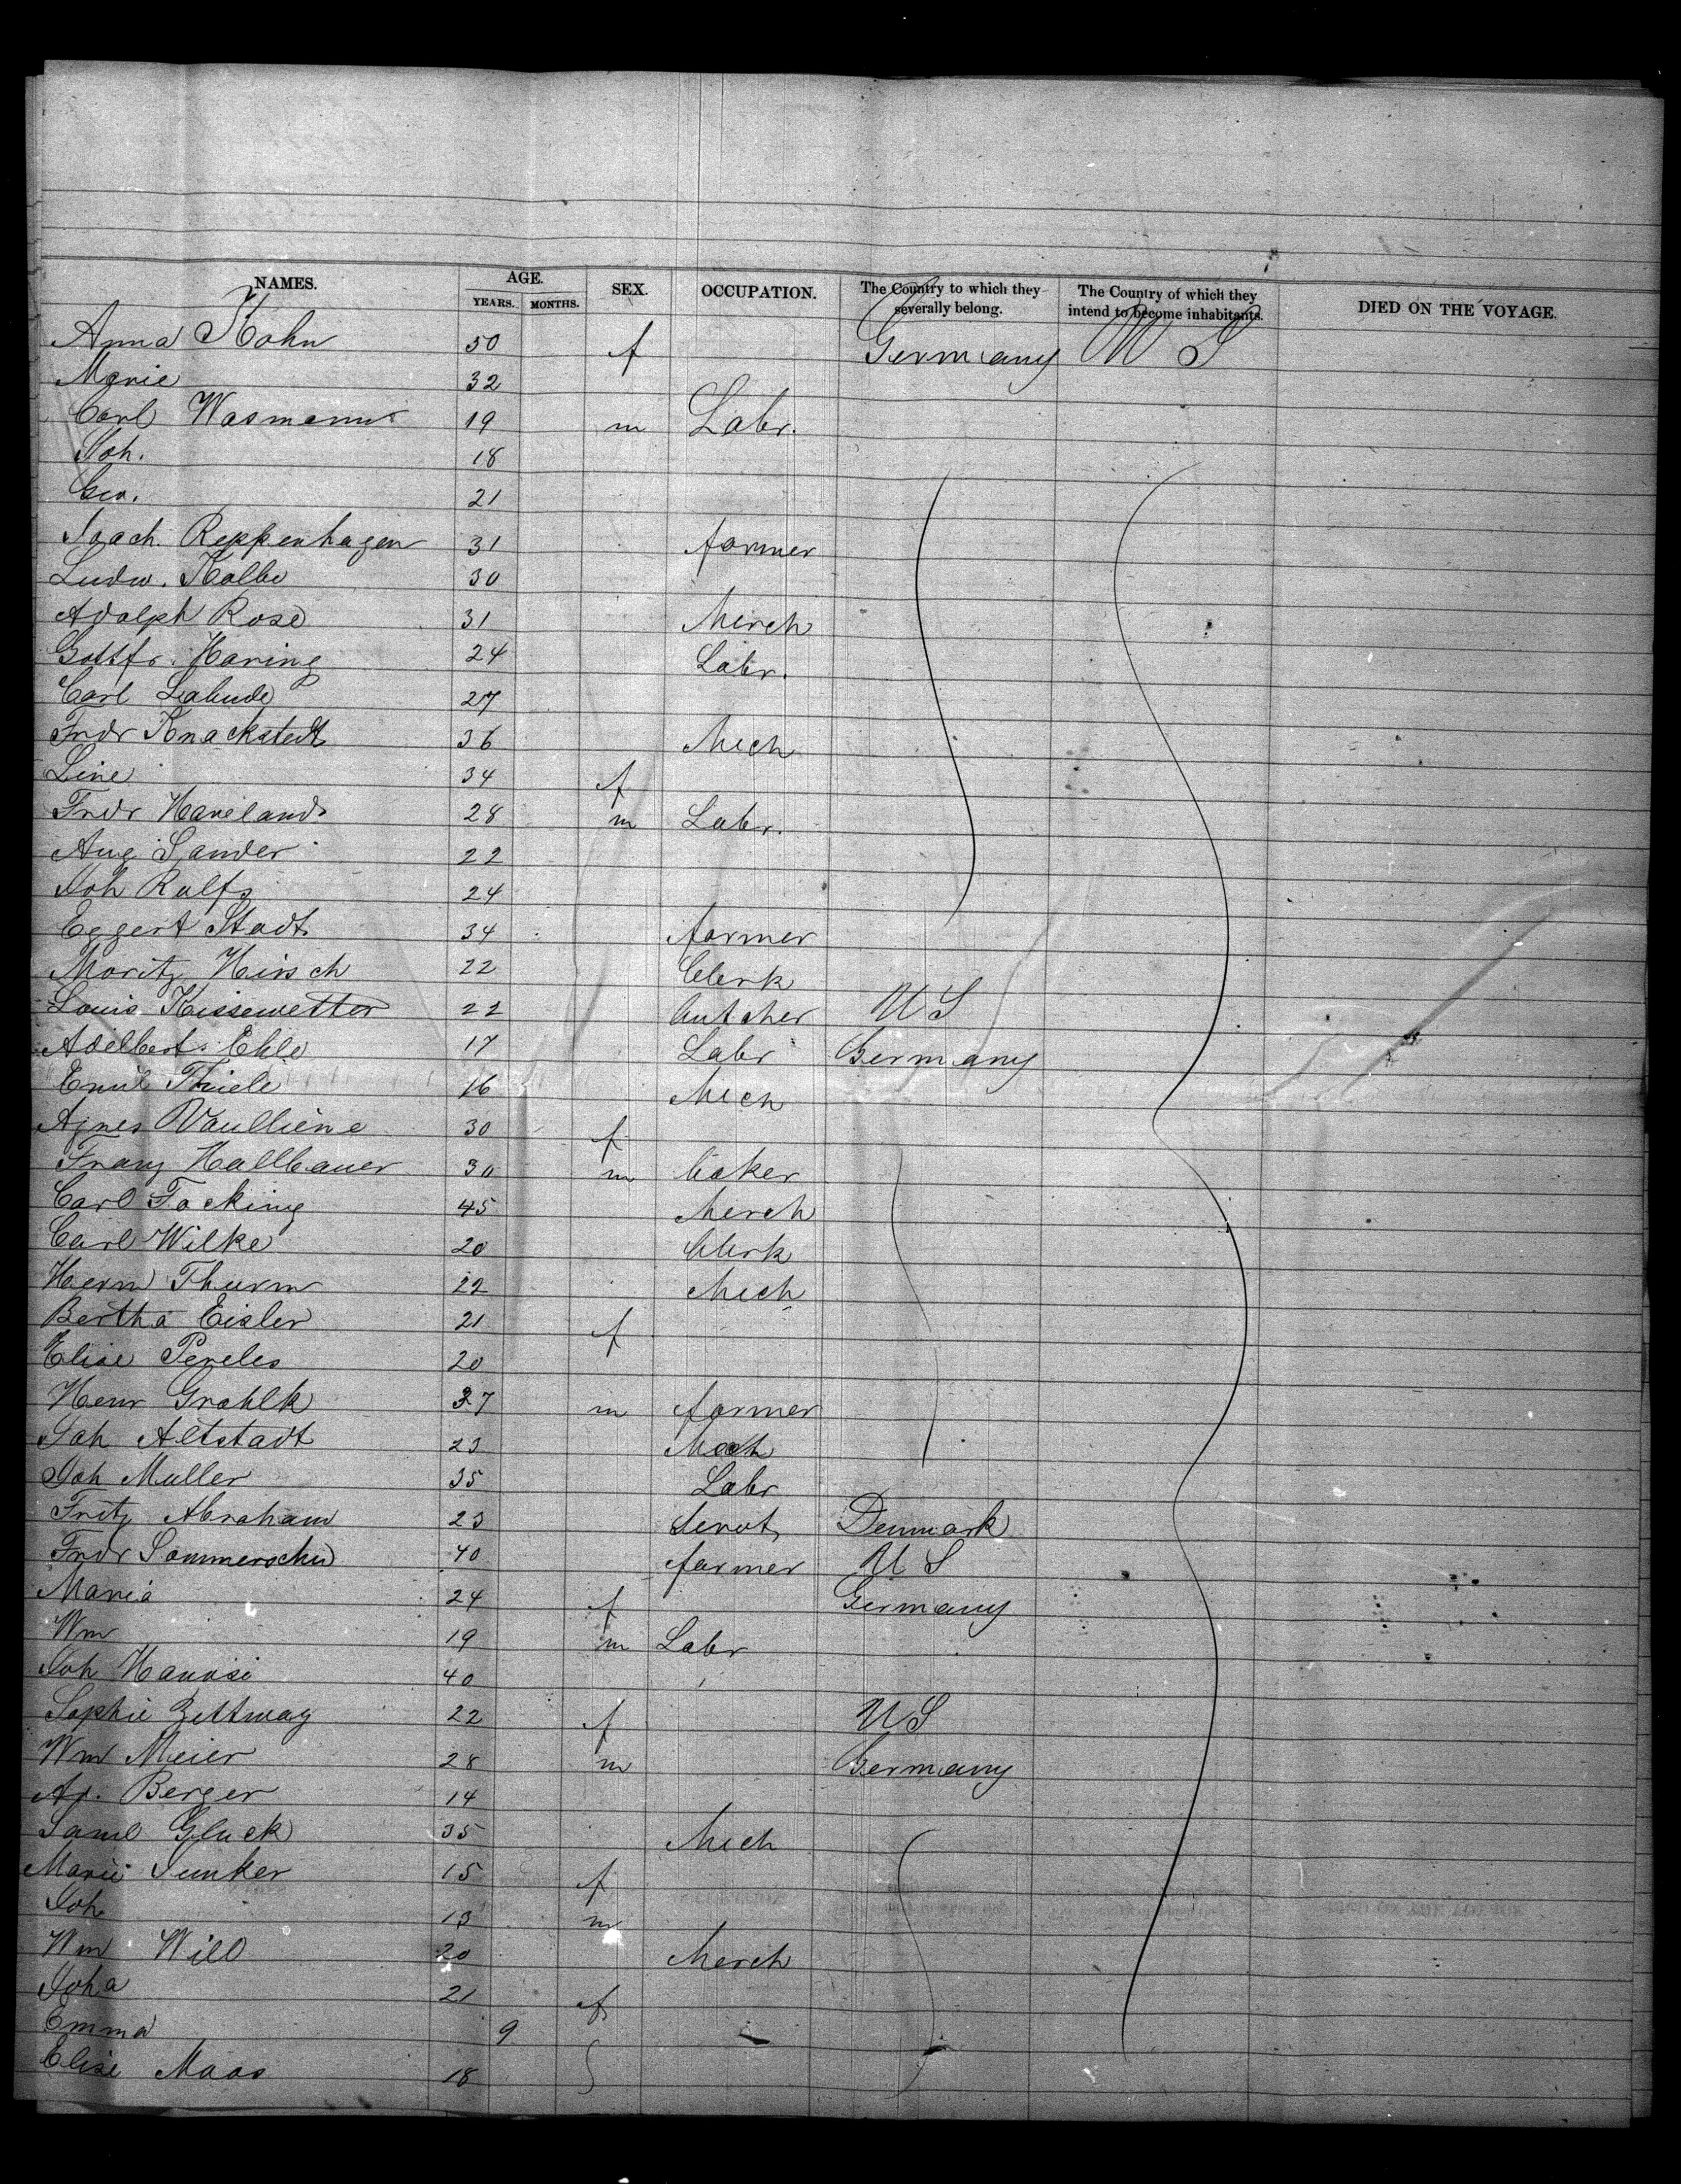 NAMES. AGE. SEX. OCCUPATION. The Country to which they severally belong. The Country of which they intend to become inhabitants. DIED ON THE VOYAGE.
YEARS. MONTHS.
Anna Kohn 50 f Germany U S
Marie 32
Carl Wasmann 19 m Labr.
Joh. 18
Geo. 21
Joach. Reppenhagen 31 farmer
Ludw. Kolbe 30
Adolph Rose 31 Merch
Gottfr. Haring 24 Labr.
Carl Labude 27
Fridr Knackstedt 36 Mech
Line 34 f
Fridr Haveland 28 m Labr.
Aug Sander 22
Joh Ralfs 24
Eggert Stadt 34 farmer
Moritz Hirsch 22 Clerk
Louis Kissewetter 22 butcher U S
Adelbert Ehle 17 Labr Germany
Emil Thiele 16 Mech
Agnes Vaulliene 30 f
Franz Hallbauer 30 m baker
Carl Focking 45 Merch
Carl Wilke 20 Clerk
Herm Thurm 22 Mech
Bertha Eisler 21 f
Elise Pereles 20
Henr Grahlk 27 m farmer
Joh Altstadt 23 Mech
Joh Muller 35 Labr
Fritz Abraham 23 Servt Denmark
Fridr Sommerschu 40 farmer U S
Maria 24 f Germany
Wm 19 m Labr
Joh 40
Sophie Zettway 22 f U S
Wm Meier 28 m Germany
Ap. Berger 14
Saml Gluck 35 Mech
Marie Junker 15 f
Joh 13 m
Wm Will 20 Merch
Joha 21 f
Emma 9
Elise Maas 18